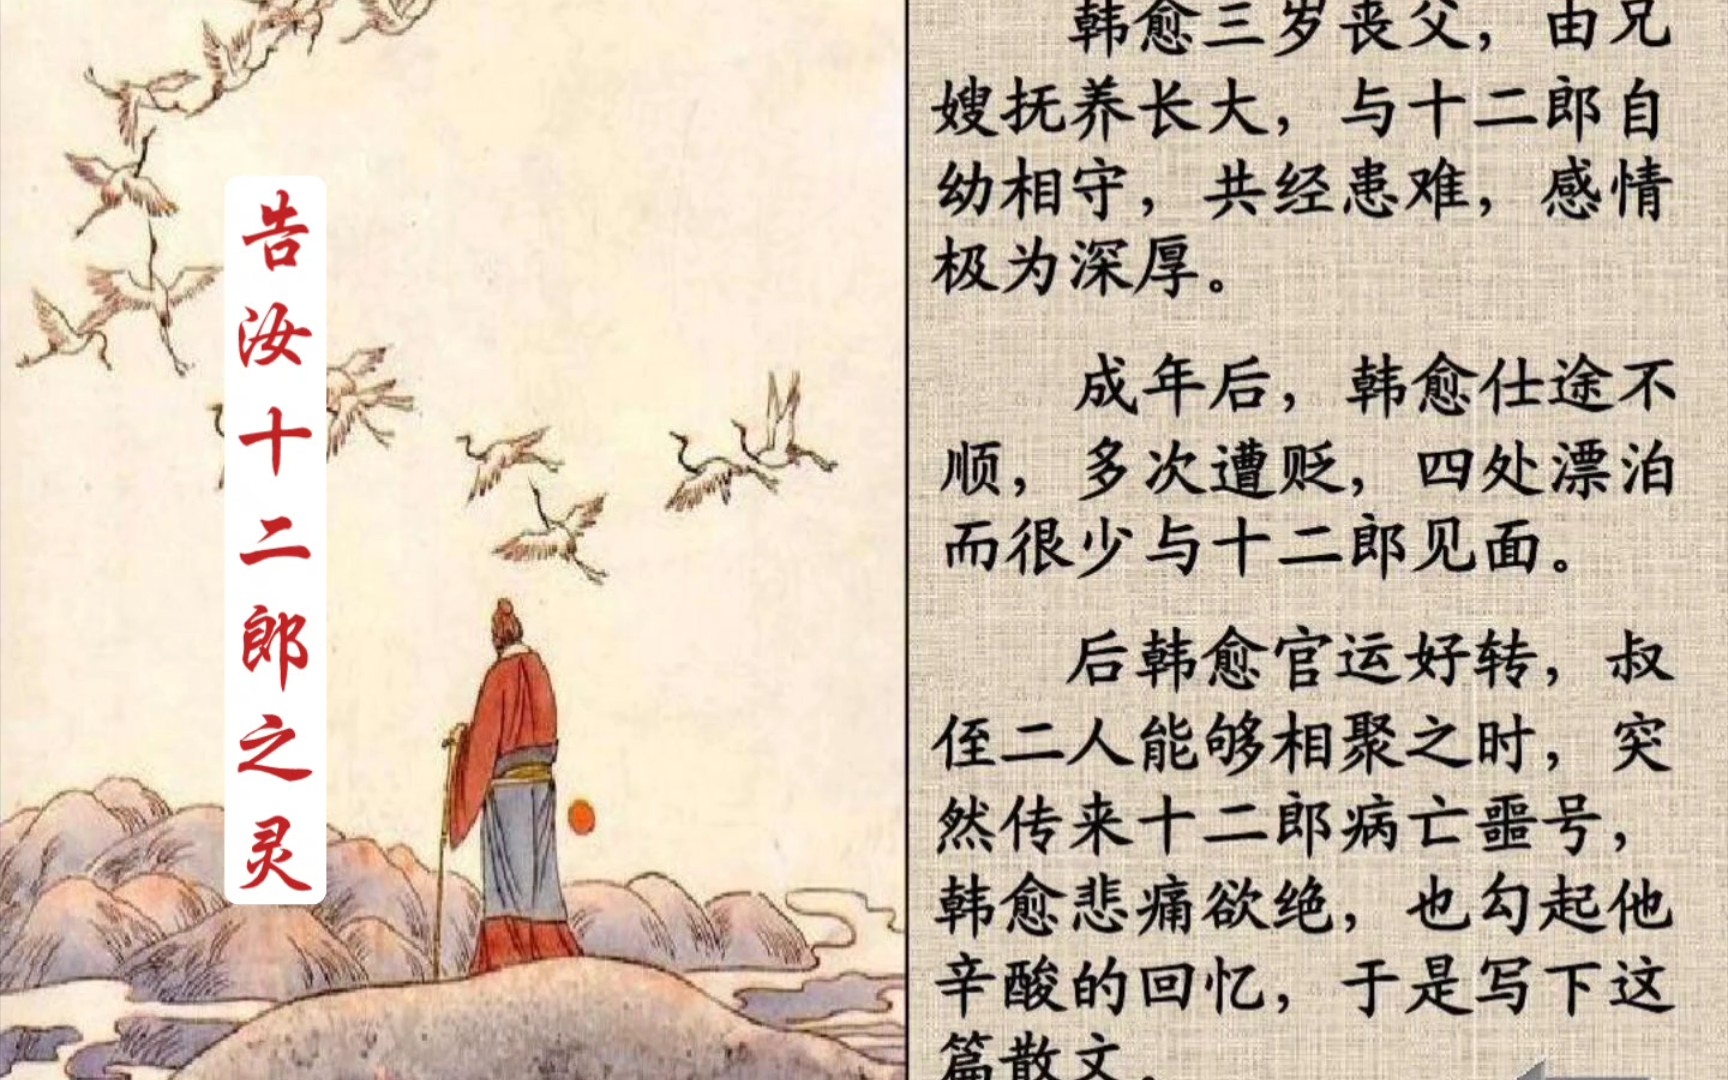 告汝十二郎之灵
韩愈三岁丧父，由兄
嫂抚养长大，与十二郎自
幼相守，共经患难，感情
极为深厚。
成年后，韩愈仕途不
顺，多次遭贬，四处漂泊
而很少与十二郎见面。
后韩愈官运好转，叔
侄二人能够相聚之时，突
然传来十二郎病亡噩号，
韩愈悲痛欲绝，也勾起他
辛酸的回忆，于是写下这
篇散文。